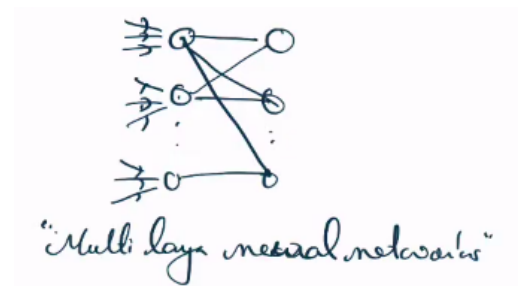 "Multi layer neural networks"